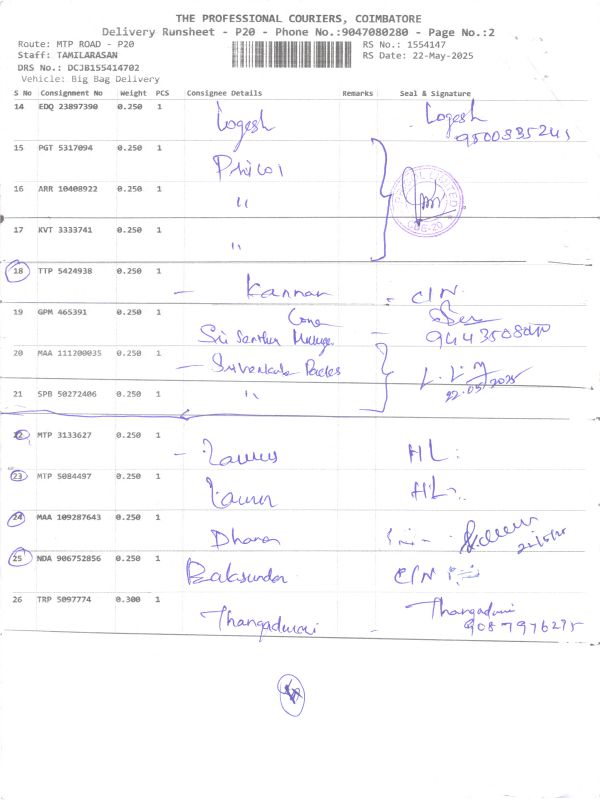 THE PROFESSIONAL COURIERS, COIMBATORE
Delivery Runsheet - P20 - Phone No.:9047080280 - Page No.:2
Route: MTP ROAD - P20 RS No.: 1554147
Staff: TAMILARASAN RS Date: 22-May-2025
DRS No.: DCJB155414702
Vehicle: Big Bag Delivery
S No Consignment No Weight PCS Consignee Details Remarks Seal & Signature
14 EDQ 23897390 0.250 1 Logesh Logesh
9500335241
15 PGT 5317094 0.250 1
16 ARR 10408922 0.250 1 "
17 KVT 3333741 0.250 1 "
18 TTP 5424938 0.250 1 - Kannan - C/N
19 GPM 465391 0.250 1 Sri Senthur
20 MAA 111200035 0.250 1 -
22.05.2025
21 SPB 50272406 0.250 1 "
22 MTP 3133627 0.250 1 - HL
23 MTP 5084497 0.250 1 HL
24 MAA 109287643 0.250 1 Dharan
25 NDA 906752856 0.250 1 Balasundar C/N
26 TRP 5097774 0.300 1 Thangadurai Thangadurai
9087976275